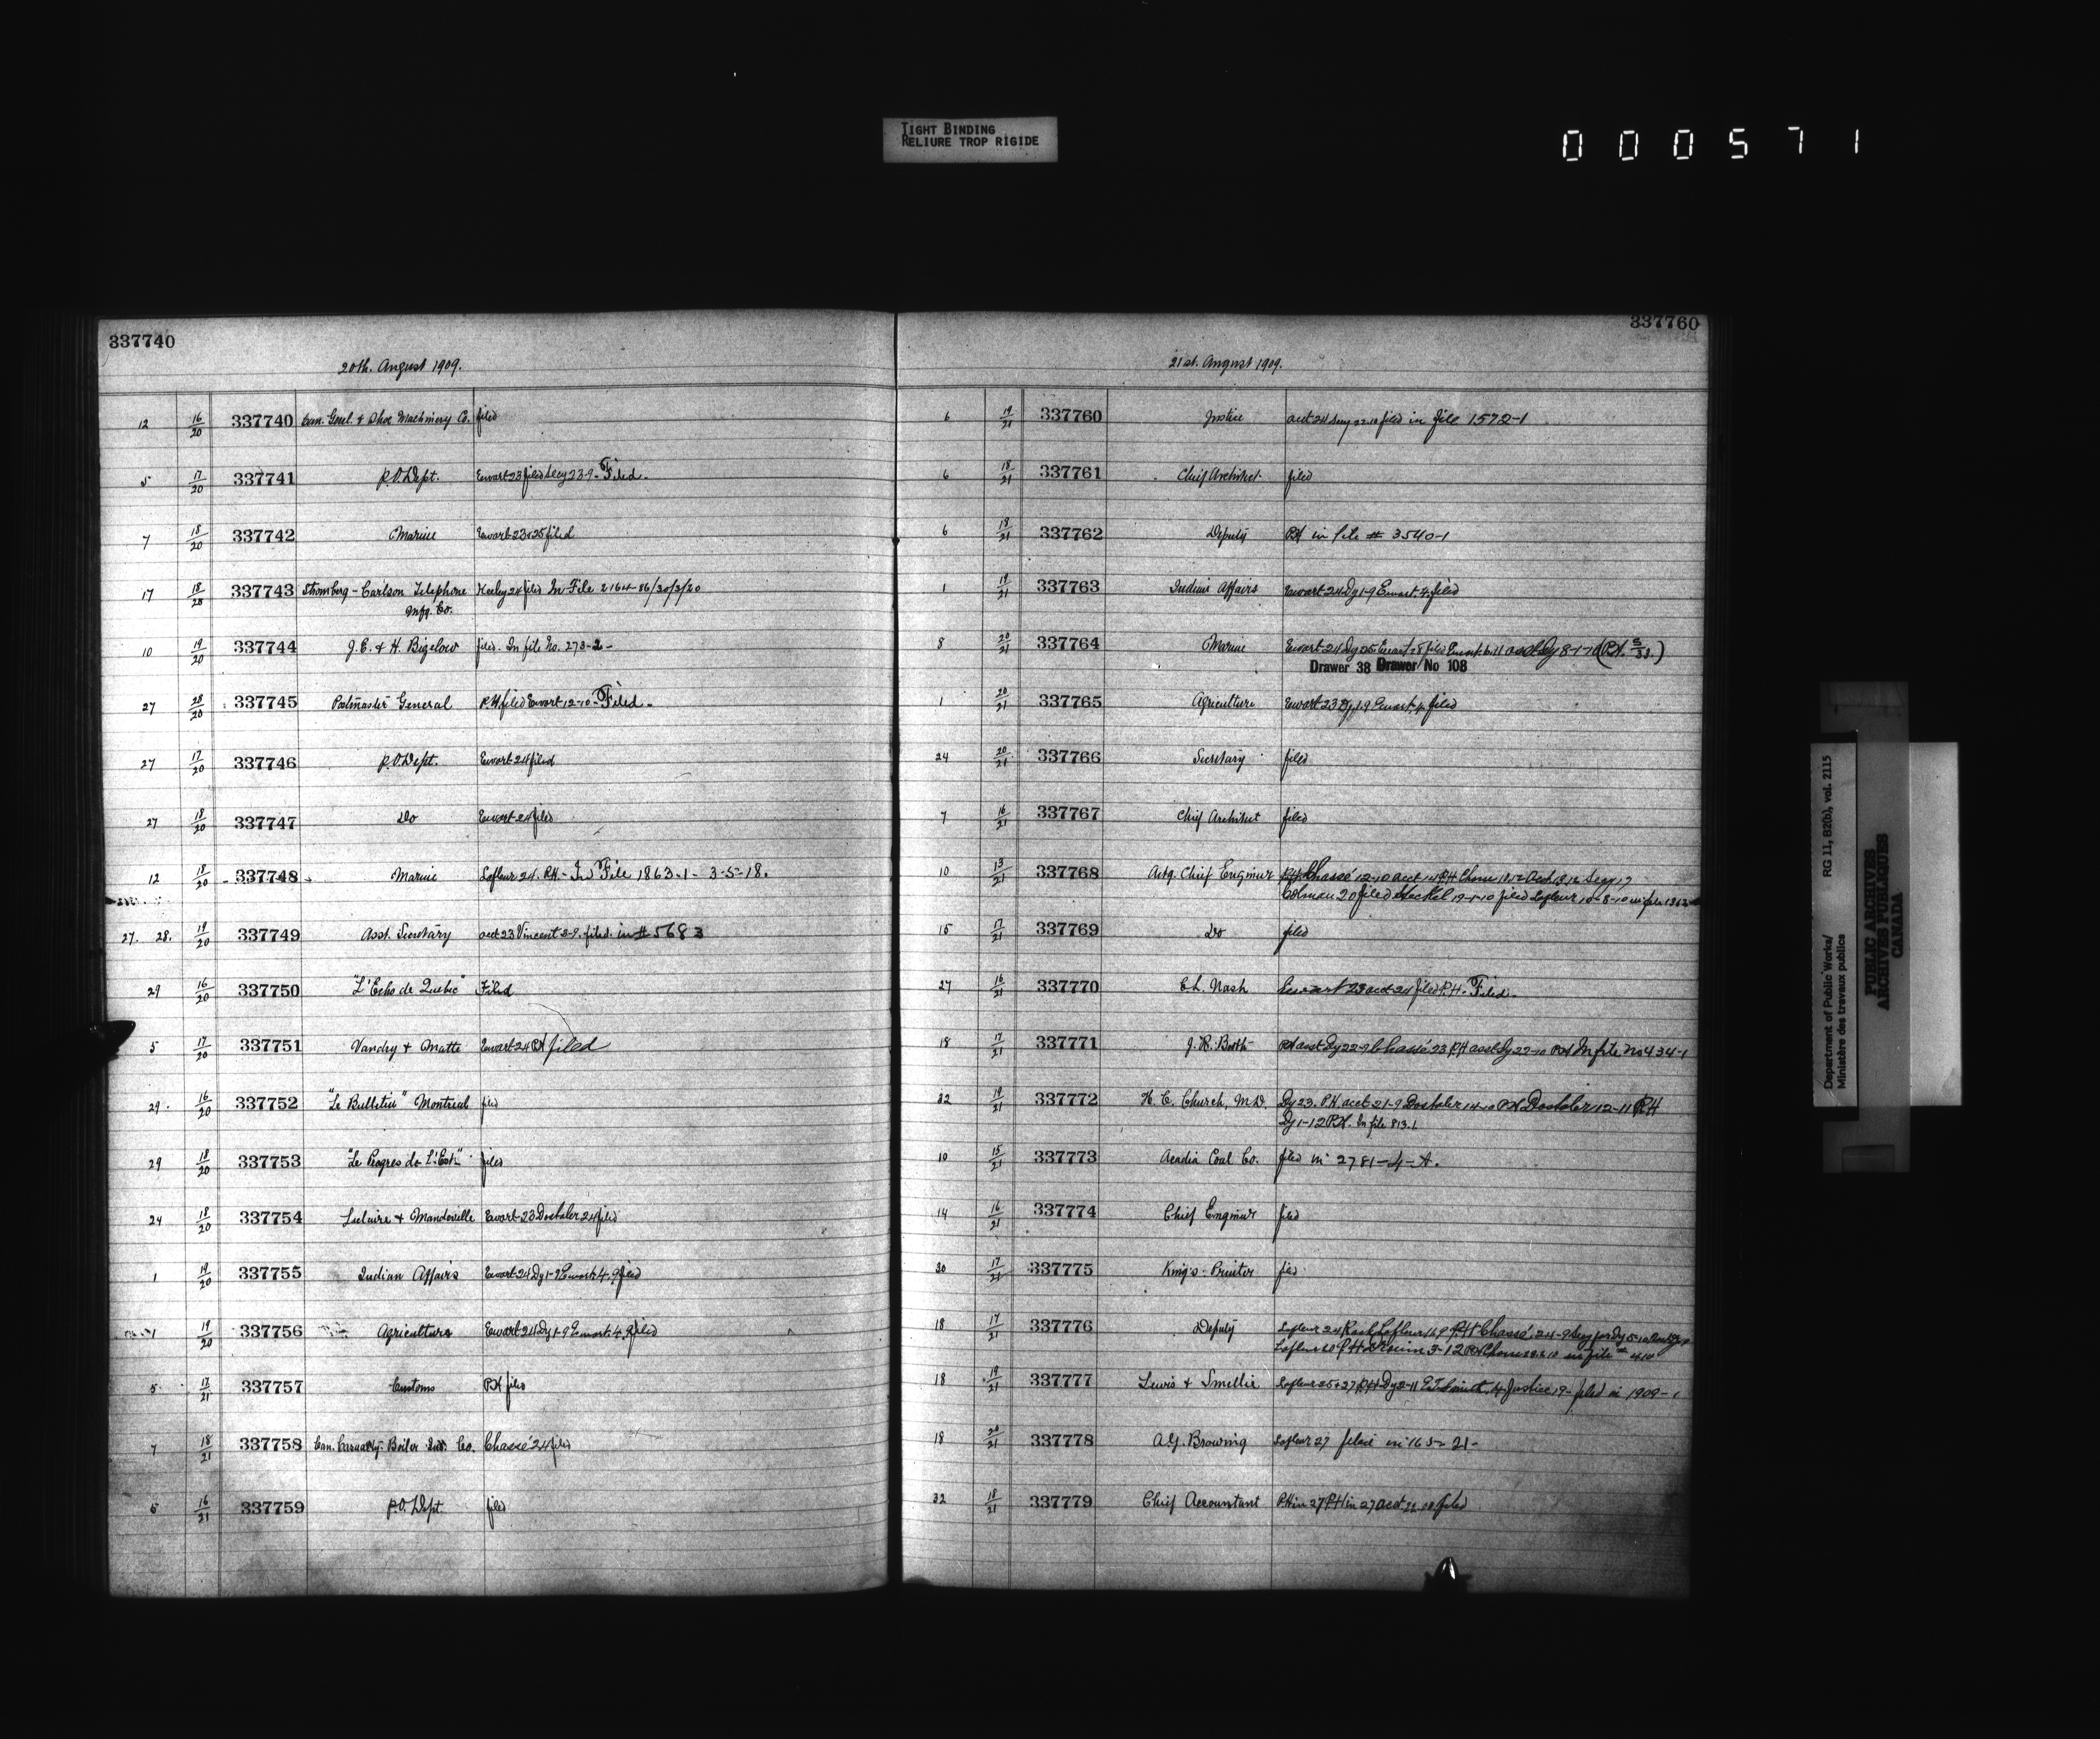 TIGHT BINDING
RELIURE TROP RIGIDE
000571
337740
20th. August 1909.
12 16/20 337740 Can. Genl. & Shoe Machinery Co. filed
5 17/20 337741 P.O. Dept. Ewart 23 filed Secy 23-9- Filed-
7 18/20 337742 Marine Ewart 23 & 25 filed
17 18/20 337743 Stromberg-Carlson Telephone Keeley 24 filed In File 2164-86/30/3/20
Mfg. Co.
10 19/20 337744 J.E. & H. Bigelow filed. In file No. 273-2-
27 20/20 337745 Postmaster General P.H filed Ewart 12-10- Filed-
27 17/20 337746 P.O. Dept. Ewart 24 filed
27 18/20 337747 Do Ewart 24 filed
12 18/20 337748 Marine Lafleur 24. P.H- In File 1863-1- 3-5-18.
27. 28. 19/20 337749 Asst. Secretary acct 23 Vincent 2-9. filed. in # 5683
29 16/20 337750 "L'Echo de Quebec" Filed
5 17/20 337751 Vandry & Matte Ewart 24 P.H filed
29. 16/20 337752 "Le Bulletin" Montreal filed
29 18/20 337753 "Le Progres de L'Est" filed
24 18/20 337754 & Mandeville Ewart 23 Dostaler 24 filed
1 19/20 337755 Indian Affairs Ewart 24 Dy 1-9 Ewart 4.9 filed
1 19/20 337756 Agriculture Ewart 24 Dy 1-9 Ewart 4.9 filed
5 17/21 337757 Customs P.H filed
7 18/21 337758 Can. Casualty Boiler Ins. Co. Chassé 24 filed
5 16/21 337759 P.O. Dept filed
337760
21st. August 1909.
6 19/21 337760 Justice acct 24 Secy 22-10 filed in file 1572-1
6 18/21 337761 Chief Architect filed
6 18/21 337762 Deputy P.H in file # 3540-1
1 19/21 337763 Indian Affairs Ewart 24 Dy 1-9 Ewart 4. filed
8 20/21 337764 Marine Ewart 24 Dy 25 Ewart filed Ewart 6.11 Dy 8-1-10 (P.H.
Drawer 38 Drawer No 108
1 20/21 337765 Agriculture Ewart 23 Dy 1-9 Ewart 4 filed
24 20/21 337766 Secretary filed
7 16/21 337767 Chief Architect filed
10 13/21 337768 Actg. Chief Engineer P.H Chassé 12-10 acct 14 P.H Secy 17
Colman 20 filed Steckel 19-1-10 filed Lafleur 10-8-10 in file
15 17/21 337769 Do filed
27 16/21 337770 E.L. Nash Ewart 23 acct 24 filed P.H- Filed-
18 17/21 337771 J.R. Booth P.H asst Dy 22-9 Chassé 23 P.H asst Dy 22-10 P.H In file No 434-1
32 19/21 337772 H.C. Church, M.D. Dy 23. P.H. acct 21-9 Dostaler 14-10 P.H Dostaler 12-11 P.H
Dy 1-12 P.H. In file 813.1.
10 15/21 337773 Acadia Coal Co. filed in 2781-4-A.
14 16/21 337774 Chief Engineer filed
30 17/21 337775 King's Printer filed
18 17/21 337776 Deputy Lafleur 24 Lafleur 16.9 P.H Chassé 24-9
Lafleur P.H 3-12 P.H in file # 410
18 19/21 337777 Lewis & Smellie Lafleur 25 & 27 P.H Dy 2-11 Smith 4 Justice 19- filed in 1909-1
18 20/21 337778 A.G. Browning Lafleur 27 filed in 165-21-
32 18/21 337779 Chief Accountant P.H in 27 P.H in 27 acct filed
Department of Public Works/
Ministère des travaux publics
RG 11, B2(b), vol. 2115
PUBLIC ARCHIVES
ARCHIVES PUBLIQUES
CANADA